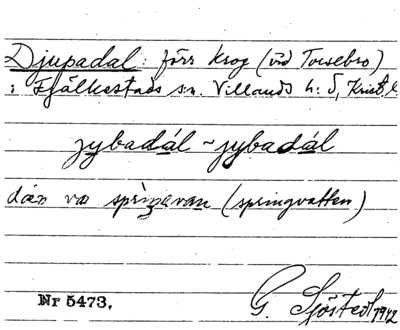 Djupadal: förr krog (vid Torsebro)
i Fjälkestads sn. Villands h:d, Krist. l.
jybadál ~ jybadál
där va spriŋavan (springvatten)
Nr 5473.
G. Sjöstedt 1942